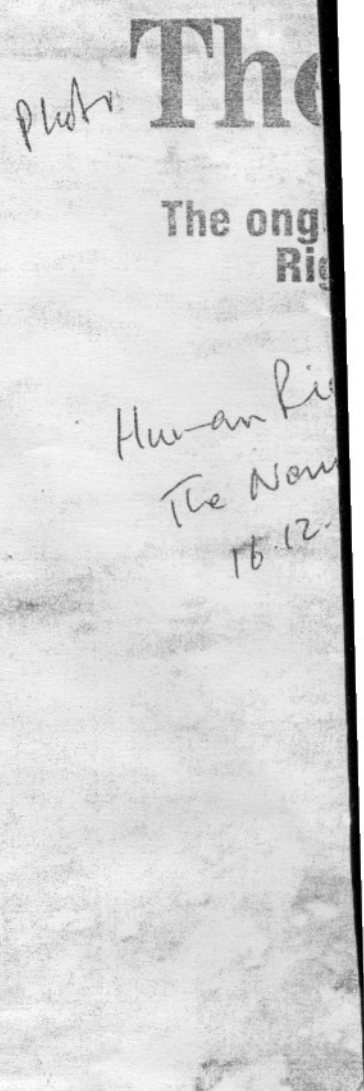 Photo The
The ong
Rig
Human Rig
The
16.12.